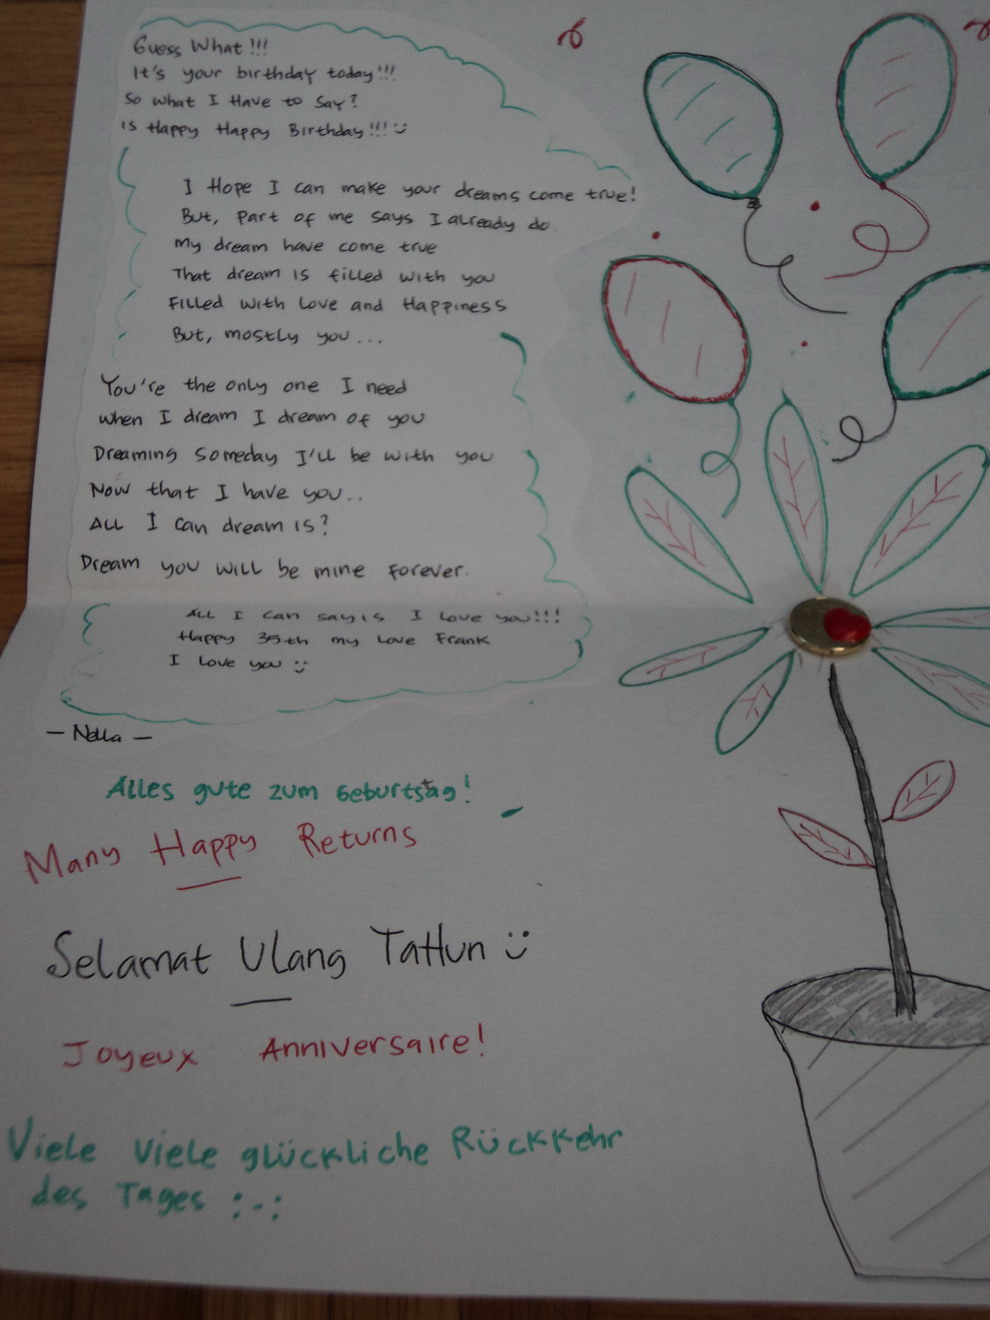 Guess What !!!
It's your birthday today!!!
So what I Have to say?
is Happy Happy Birthday!!! :)
I Hope I can make your dreams come true!
But, part of me says I already do.
my dream have come true
That dream is filled with you
Filled with Love and Happiness
But, mostly you...
You're the only one I need
when I dream I dream of you
Dreaming someday I'll be with you
Now that I have you..
All I can dream is?
Dream you will be mine forever.
All I can say is I Love you!!!
Happy my Love Frank
I Love you :)
- Nella -
Alles gute zum Geburtstag!
Many Happy Returns
Selamat Ulang TaHun :)
Joyeux Anniversaire!
Viele Viele glückliche Rückkehr
des Tages :-: